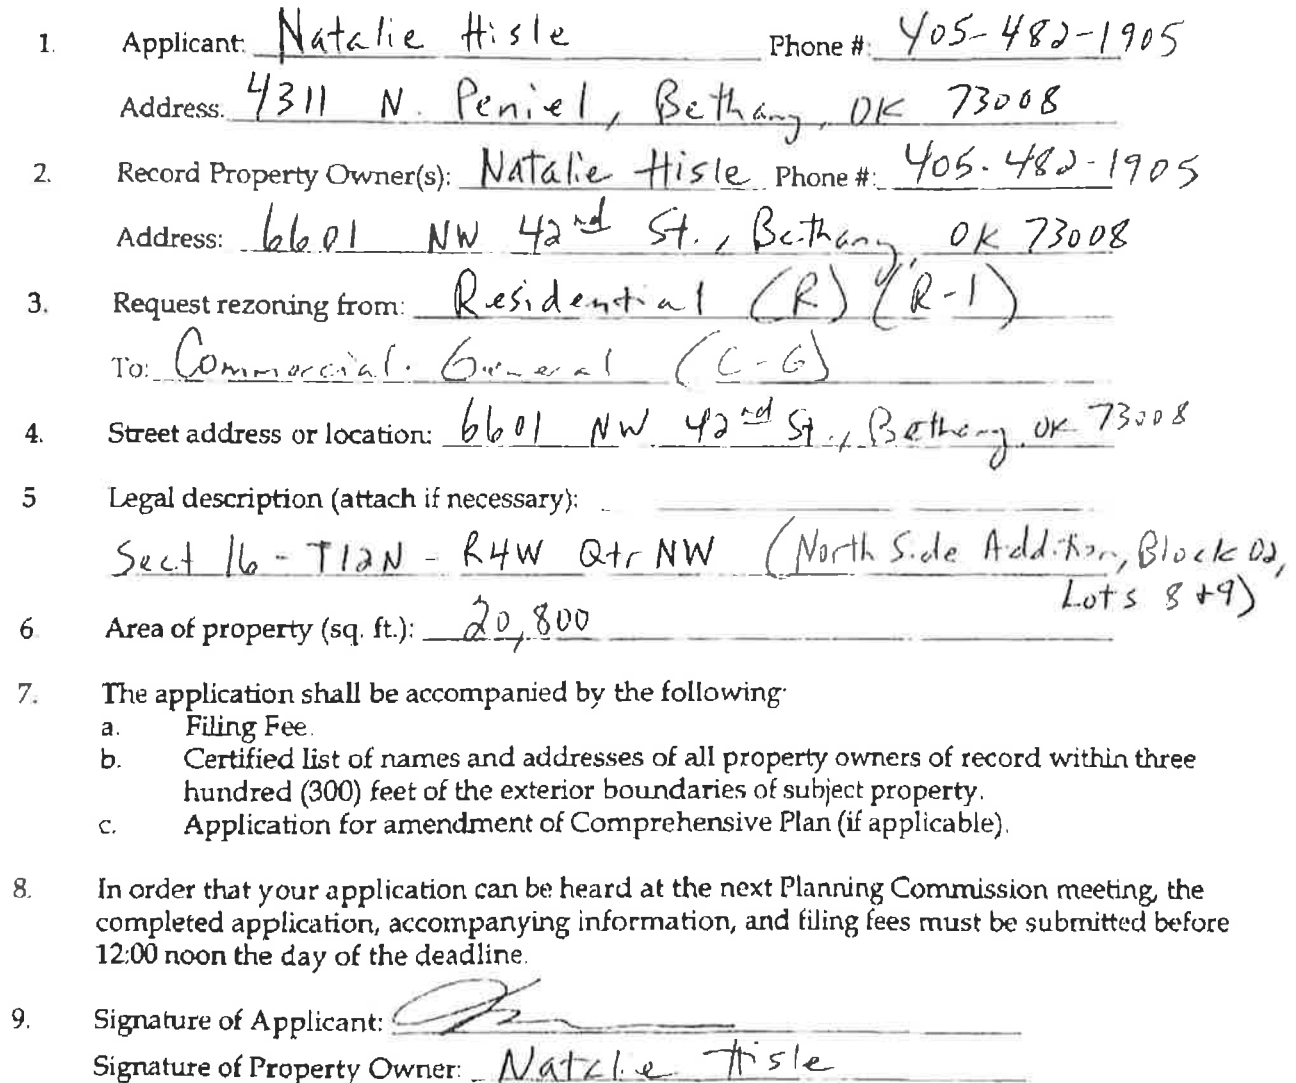 1. Applicant: Natalie Hisle Phone #: 405-482-1905
Address: 4311 N. Peniel, Bethany, OK 73008
2. Record Property Owner(s): Natalie Hisle Phone #: 405-482-1905
Address: 6601 NW 42nd St., Bethany, OK 73008
3. Request rezoning from: Residential (R) (R-1)
To: Commercial-General (C-G)
4. Street address or location: 6601 NW 42nd St., Bethany, OK 73008
5 Legal description (attach if necessary):
Sect 16 - T12N - R4W Qtr NW (North Side Addition, Block 02,
Lots 8 + 9)
6 Area of property (sq. ft.): 20,800
7. The application shall be accompanied by the following:
a. Filing Fee.
b. Certified list of names and addresses of all property owners of record within three
hundred (300) feet of the exterior boundaries of subject property.
c. Application for amendment of Comprehensive Plan (if applicable).
8. In order that your application can be heard at the next Planning Commission meeting, the
completed application, accompanying information, and filing fees must be submitted before
12:00 noon the day of the deadline.
9. Signature of Applicant:
Signature of Property Owner: Natalie Hisle